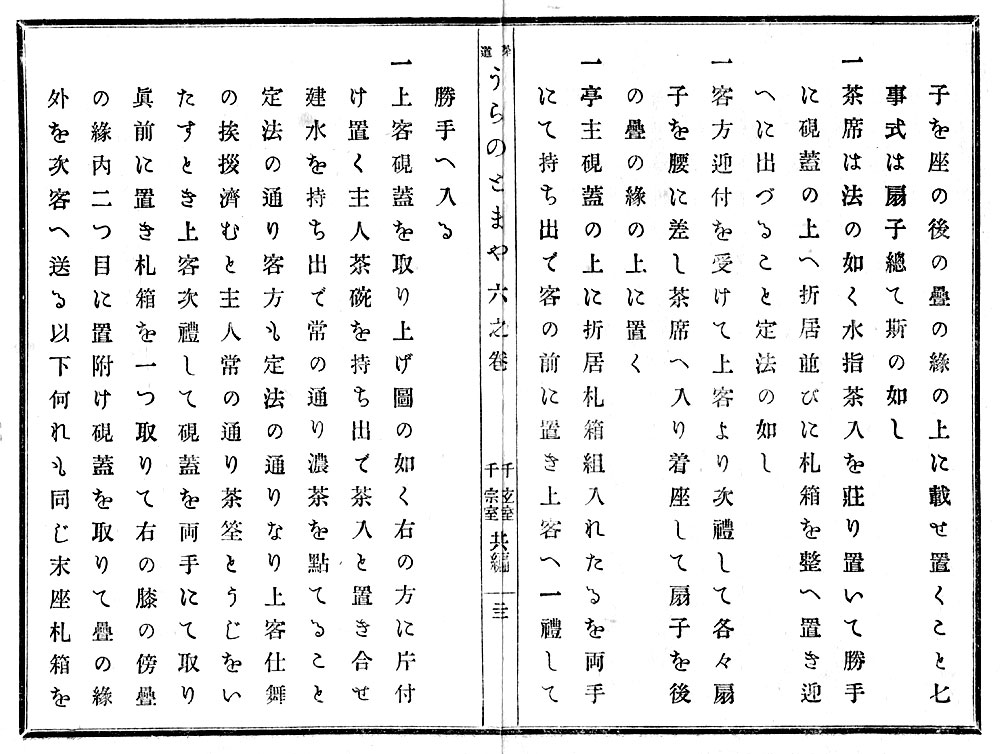 子を座の後の疊の緣の上に載せ置くこと七
事式は扇子總て斯の如し
一茶席は法の如く水指茶入を莊り置いて勝手
に硯葢の上へ折居並びに札箱を整へ置き迎
へに出づること定法の如し
一客方迎付を受けて上客より次禮して各々扇
子を腰に差し茶席へ入り着座して扇子を後
の疊の緣の上に置く
一亭主硯葢の上に折居札箱組入れたるを両手
にて持ち出で客の前に置き上客へ一禮して
茶道うらのとまや六之卷
千玄室
千宗室
共編
三
勝手へ入る
一上客硯葢を取り上げ圖の如く右の方に片付
け置く主人茶碗を持ち出で茶入と置き合せ
建水を持ち出で常の通り濃茶を點てること
定法の通り客方も定法の通りなり上客仕舞
の挨拶濟むと主人常の通り茶筌とうじをい
たすとき上客次禮して硯葢を両手にて取り
眞前に置き札箱を一つ取りて右の膝の傍疊
の緣內二つ目に置附け硯葢を取りて疊の緣
外を次客へ送る以下何れも同じ末座札箱を